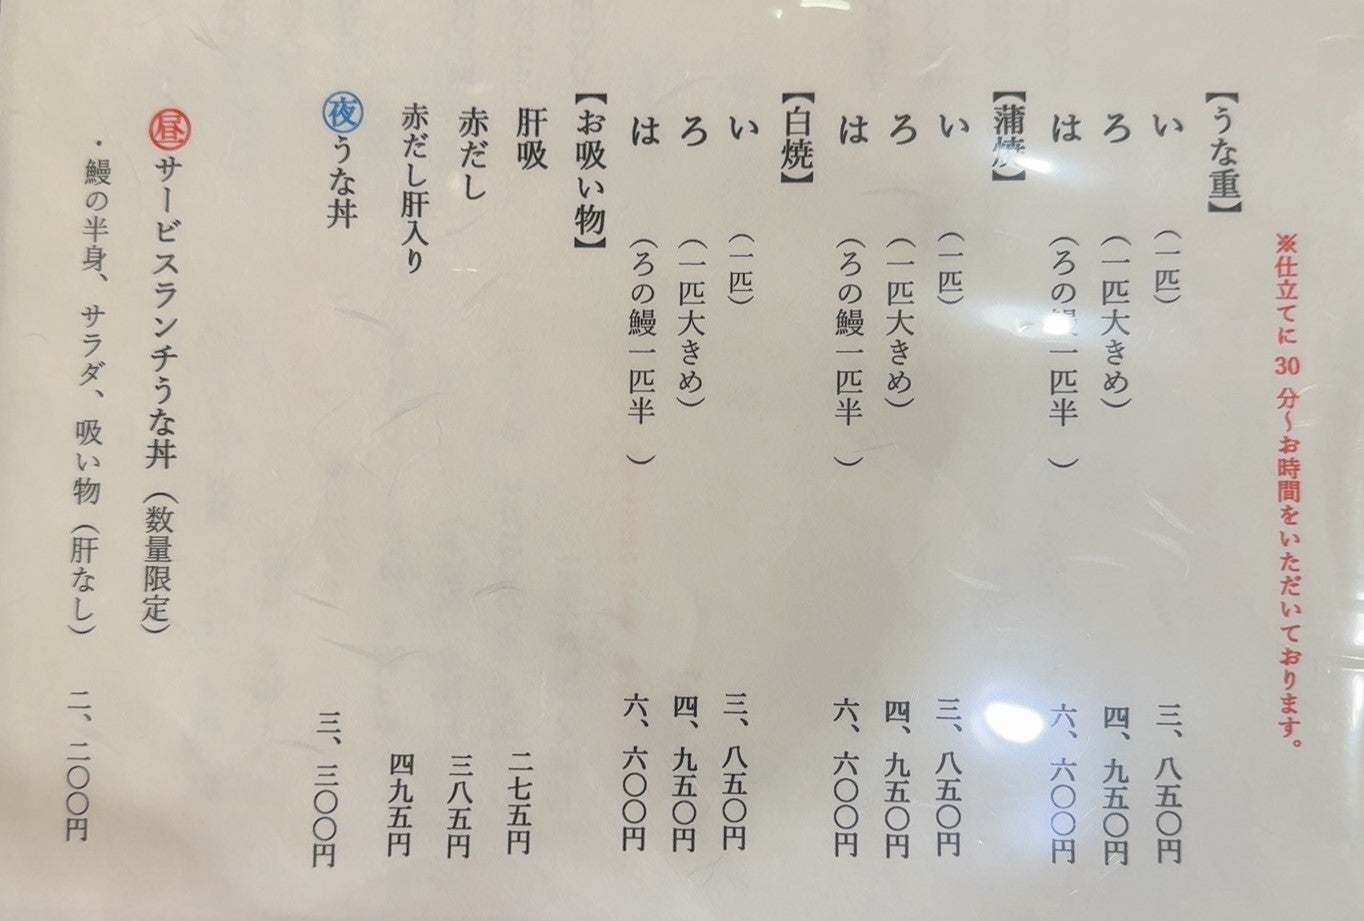 ※仕立てに30分～お時間をいただいております。
【うな重】
い（一匹）三、八五〇円
ろ（一匹大きめ）四、九五〇円
は（ろの鰻一匹半）六、六〇〇円
【蒲焼】
い（一匹）三、八五〇円
ろ（一匹大きめ）四、九五〇円
は（ろの鰻一匹半）六、六〇〇円
【白焼】
い（一匹）三、八五〇円
ろ（一匹大きめ）四、九五〇円
は（ろの鰻一匹半）六、六〇〇円
【お吸い物】
肝吸 二七五円
赤だし 三八五円
赤だし肝入り 四九五円
夜うな丼 三、三〇〇円
昼サービスランチうな丼（数量限定）
・鰻の半身、サラダ、吸い物（肝なし）二、二〇〇円